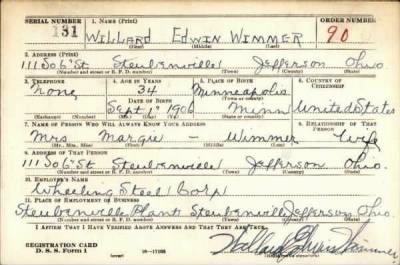 SERIAL NUMBER 1. NAME (Print) ORDER NUMBER
131 WILLARD EDWIN WIMMER 90
(First) (Middle) (Last)
2. ADDRESS (Print)
111 So 6th St Steubenville Jefferson Ohio
(Number and street or R. F. D. number) (Town) (County) (State)
3. TELEPHONE 4. AGE IN YEARS 5. PLACE OF BIRTH 6. COUNTRY OF CITIZENSHIP
none 34 Minneapolis
DATE OF BIRTH (Town or county)
Sept 1st 1906 Minn United States
(Exchange) (Number) (Mo.) (Day) (Yr.) (State or country)
7. NAME OF PERSON WHO WILL ALWAYS KNOW YOUR ADDRESS 8. RELATIONSHIP OF THAT PERSON
Mrs Margie - Wimmer Wife
(Mr., Mrs., Miss) (First) (Middle) (Last)
9. ADDRESS OF THAT PERSON
111 So 6th St Steubenville Jefferson Ohio
(Number and street or R. F. D. number) (Town) (County) (State)
10. EMPLOYER'S NAME
Wheeling Steel Corp
11. PLACE OF EMPLOYMENT OR BUSINESS
Steubenville Plant Steubenville Jefferson Ohio
(Number and street or R. F. D. number) (Town) (County) (State)
I AFFIRM THAT I HAVE VERIFIED ABOVE ANSWERS AND THAT THEY ARE TRUE.
REGISTRATION CARD
D. S. S. Form 1 (over) Willard Edwin Wimmer